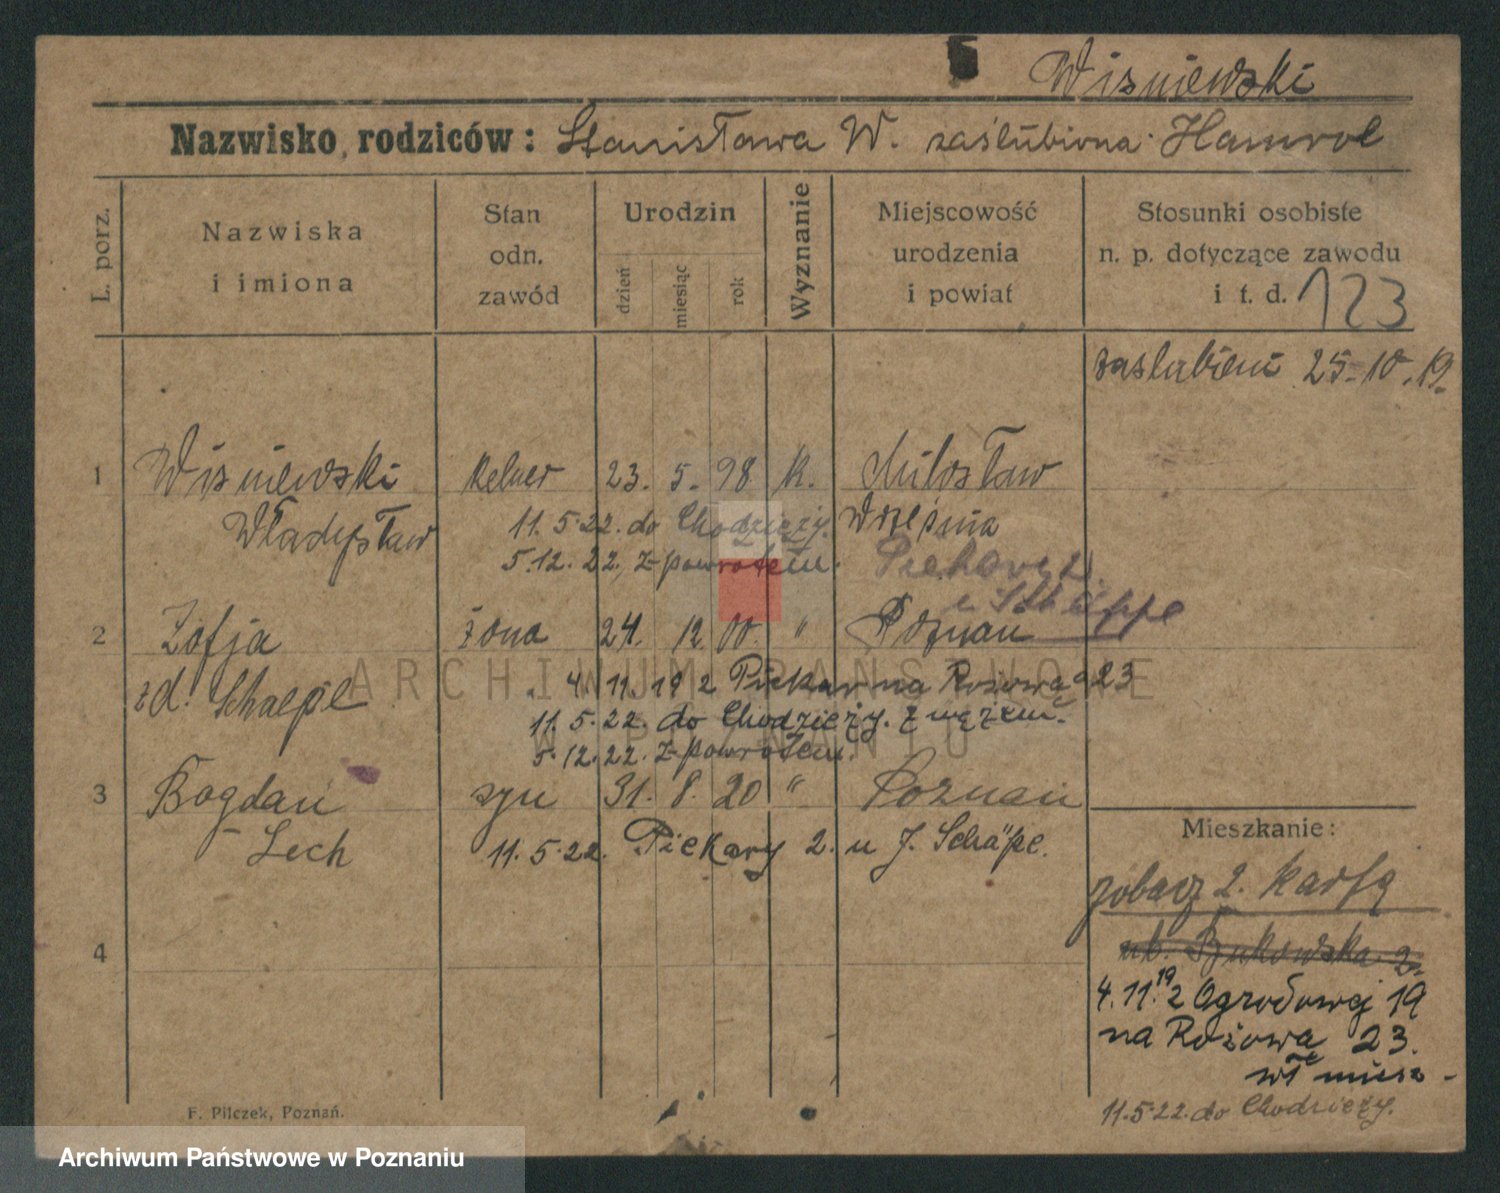 Wiśniewski
Nazwisko rodziców: Stanisława W. zaślubiona Hamrol
L. porz.
Nazwiska
i imiona
Stan
odn.
zawód
Urodzin
dzień
miesiąc
rok
Wyznanie
Miejscowość
urodzenia
i powiat
Stosunki osobiste
n. p. dotyczące zawodu
i t. d. 123
zaslubieni 25-10.19.
1 Wiśniewski kelner 23. 5. 98 K. Miłosław
Władysław 11.5.22. do Chodzieży. Września
5.12.22. z powrotem. Piekary 2.
u Schäppe
2 Zofja żona 24. 12. 00. " Poznań
zd. Schaepe 4.11.19 z Piekar na Różową 23
11.5.22. do Chodzieży. z mężem.
5.12.22. z powrotem.
3 Bogdan syn 31. 8. 20 " Poznań
Lech 11.5.22. Piekary 2. u J. Schäpe.
4
Mieszkanie:
zobacz 2. kartę
ul. Bukowska 2.
4.11.19 z Ogrodowej 19
na Różową 23.
wł miesz.
11.5.22. do Chodzieży.
F. Pilczek, Poznań.
ARCHIWUM PAŃSTWOWE
W POZNANIU
Archiwum Państwowe w Poznaniu